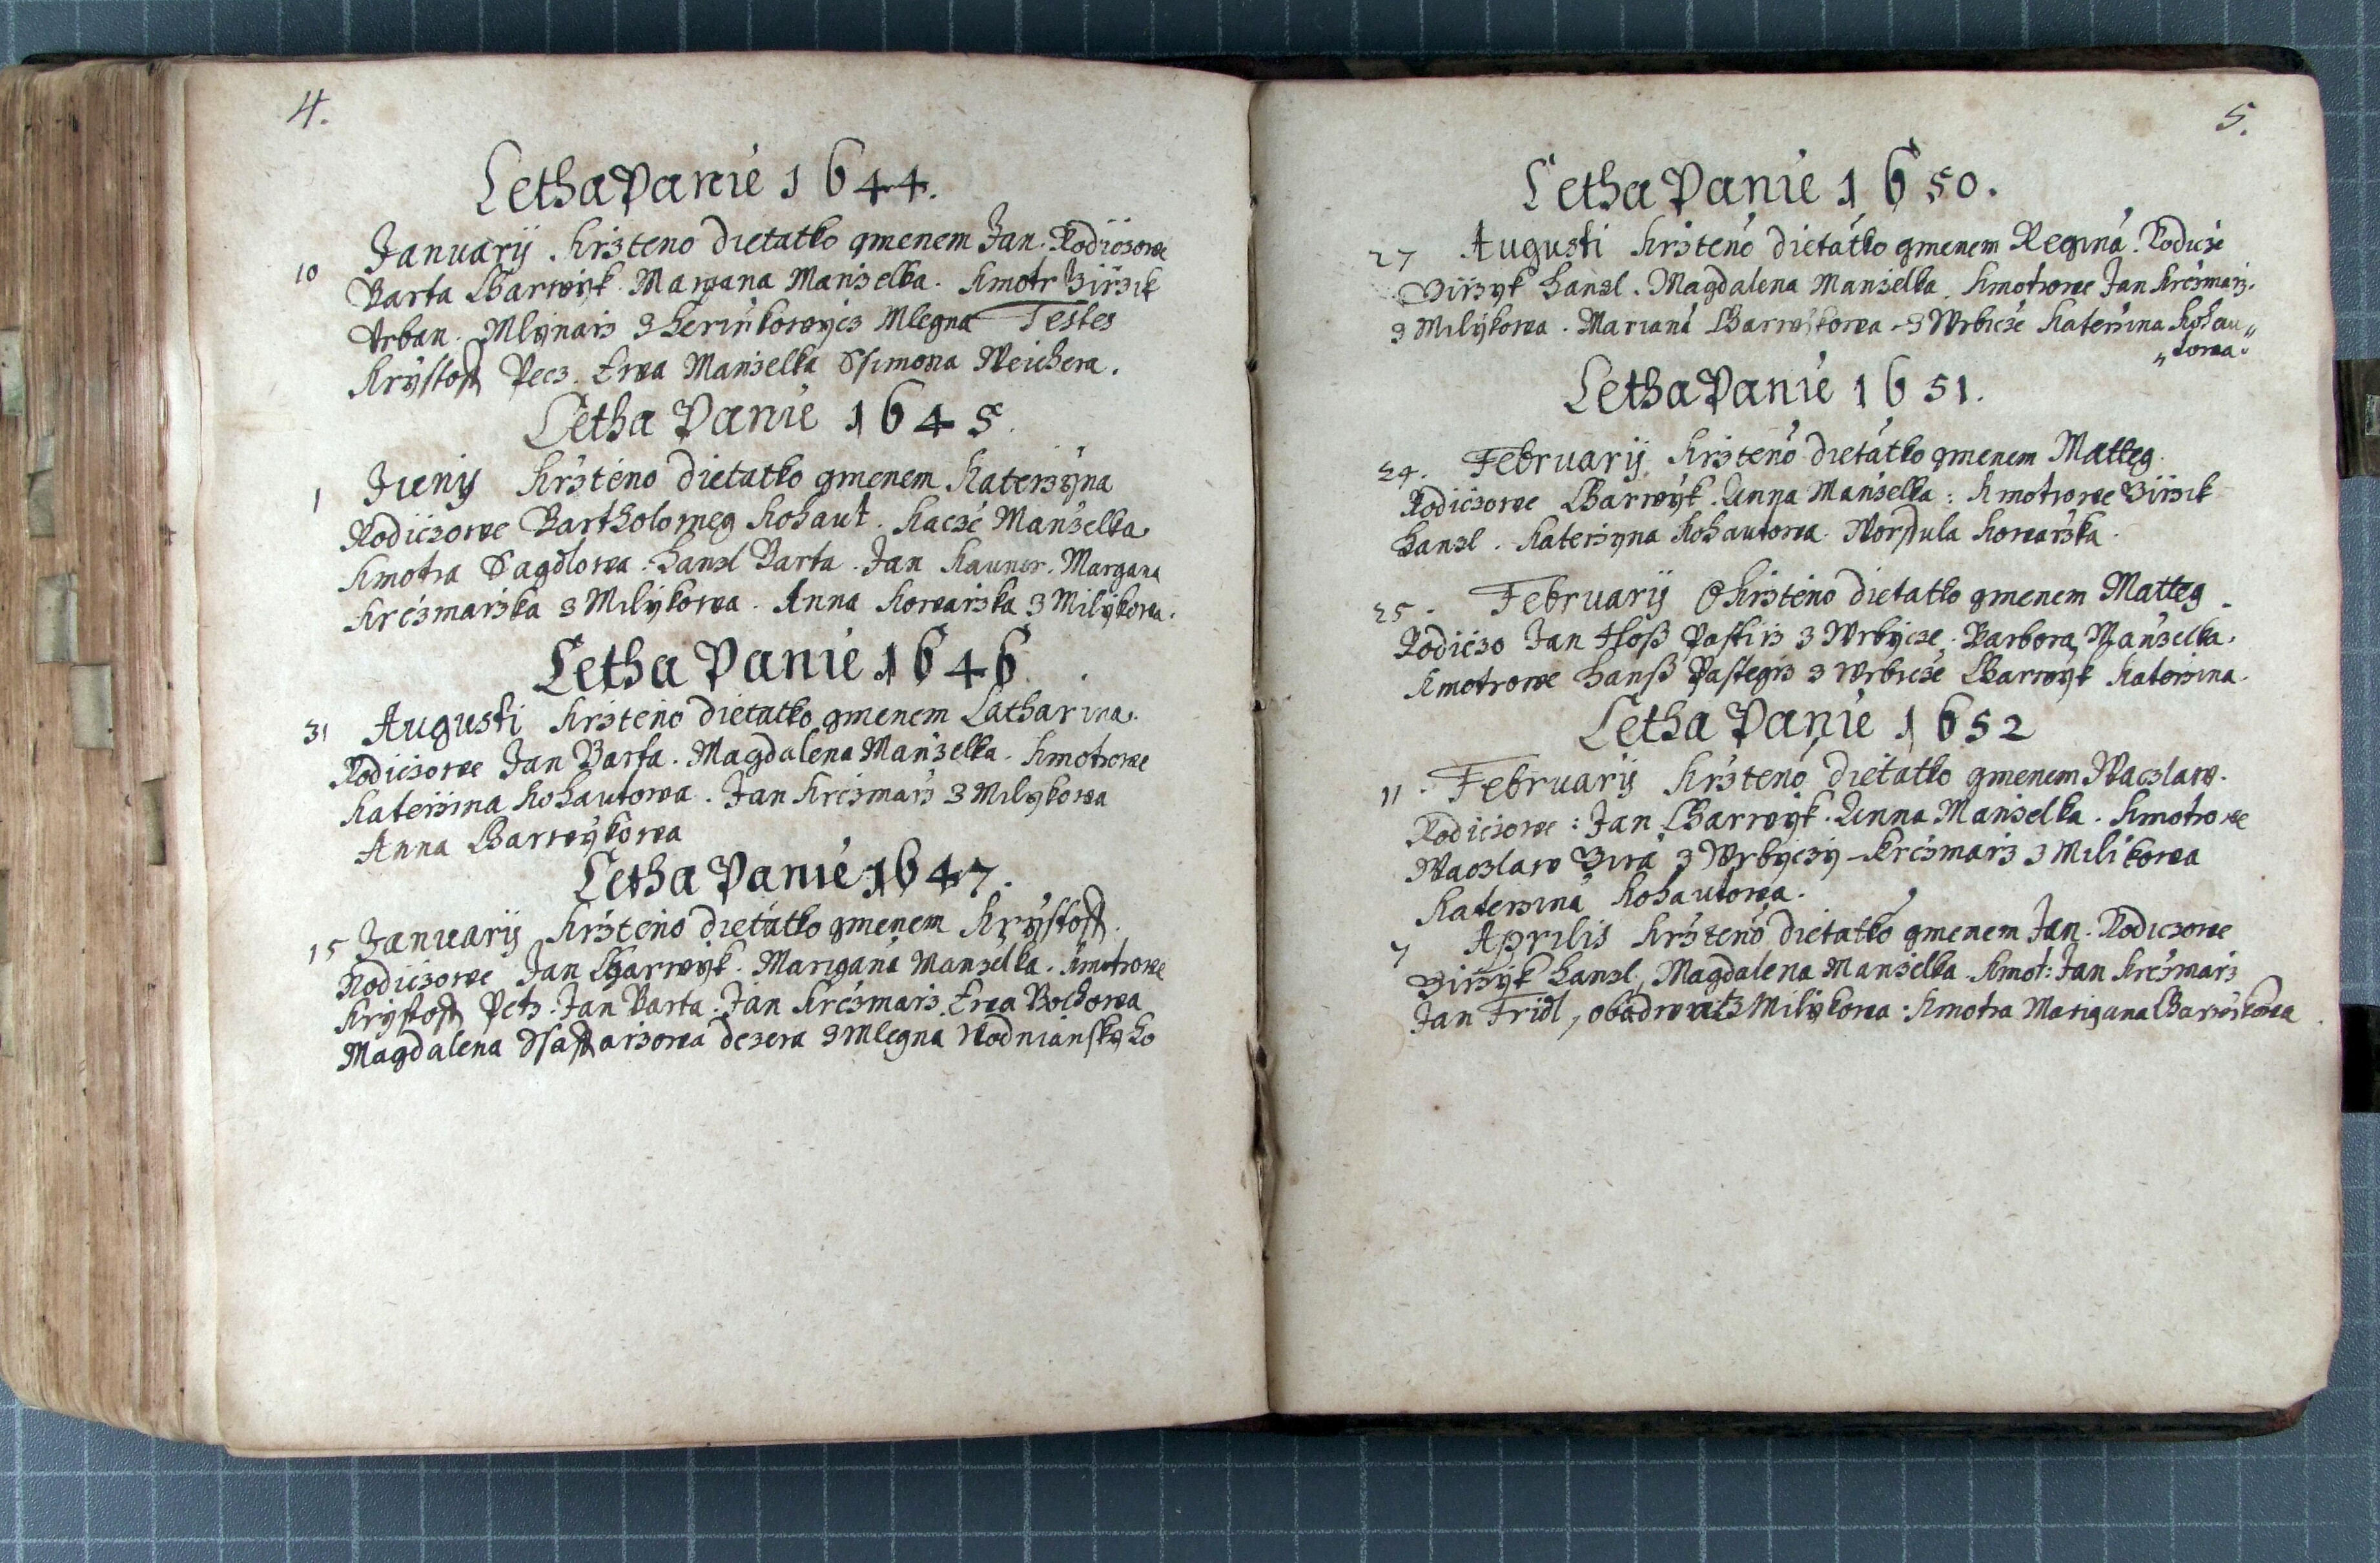 4.
Letha Panie 1644.
10 Januarij Krzteno dietatko gmenem Jan. Rodiczowe
Barta Barwyk. Maryana Manzelka. Kmotr Girzik
Vrban. Mlynarz
Krÿstoff Pecz. Ewa Manzelka Ssimona Weichera.
Letha Panie 1645.
1 Junij Krzteno dietatko gmenem Katerzyna
Rodiczowe Bartholomeg Kohaut. Kacze Manzelka
Kmotra Sagdlowa. Hansl Barta. Jan Kauner. Margana
Krczmarzka z Milykowa. Anna Kowarzka z Milÿkowa.
Letha Panie 1646.
31 Augusti Krzteno dietatko gmenem Catharina.
Rodiczowe Jan Barta. Magdalena Manzelka. Kmotrowe
Katerzina Kohautowa. Jan Krczmarz z Milykowa
Anna Barwykowa
Letha Panie 1647.
15 Januarij Krzteno dietatko gmenem Krÿstoff.
Rodiczowe Jan Barwyk. Marigana Manzelka. Kmotrowe
Krystoff Petz. Jan Barta. Jan Krczmarz. Ewa Bochowa
Magdalena Ssaffarzowa dczera z Mlegna Wodnianskyho
5.
Letha Panie 1650.
27 Augusti Krzteno dietatko gmenem Regina. Rodicze
Girzyk Hansl. Magdalena Manzelka. Kmotrowe Jan Krczmarz.
z Milÿkowa. Mariana Barwikowa z Wrbicze Katerzina Kohau„
„towa.
Letha Panie 1651.
24. Februarij Krzteno dietatko gmenem Matteg.
Rodiczowe Barwÿk. Anna Manzelka: Kmotrowe Girzik
Hansl. Katerzyna Kohautowa. Worssula Kowarzka.
25. Februarij Okrzteno dietatko gmenem Matteg.
Rodiczo Jan Hoß Pastirz z Wrbycze. Barbora Manzelka.
Kmotrowe Hanß Pastegrz z Wrbicze Barwyk Katerzina.
Letha Panie 1652
11. Februarij Krzteno dietatko gmenem Waczlaw.
Rodiczowe: Jan Barwyk. Anna Manzelka. Kmotrowe
Waczlaw z Wrbyczy - Krczmarz z Milikowa
Katerzina Kohautowa.
7 Aprilis Krzteno dietatko gmenem Jan. Rodiczowe
Girzyk Hansl, Magdalena Manzelka. Kmot: Jan Krczmarz
Jan Fridl, obadwa z Milykowa: Kmotra Marigana Barwikowa.